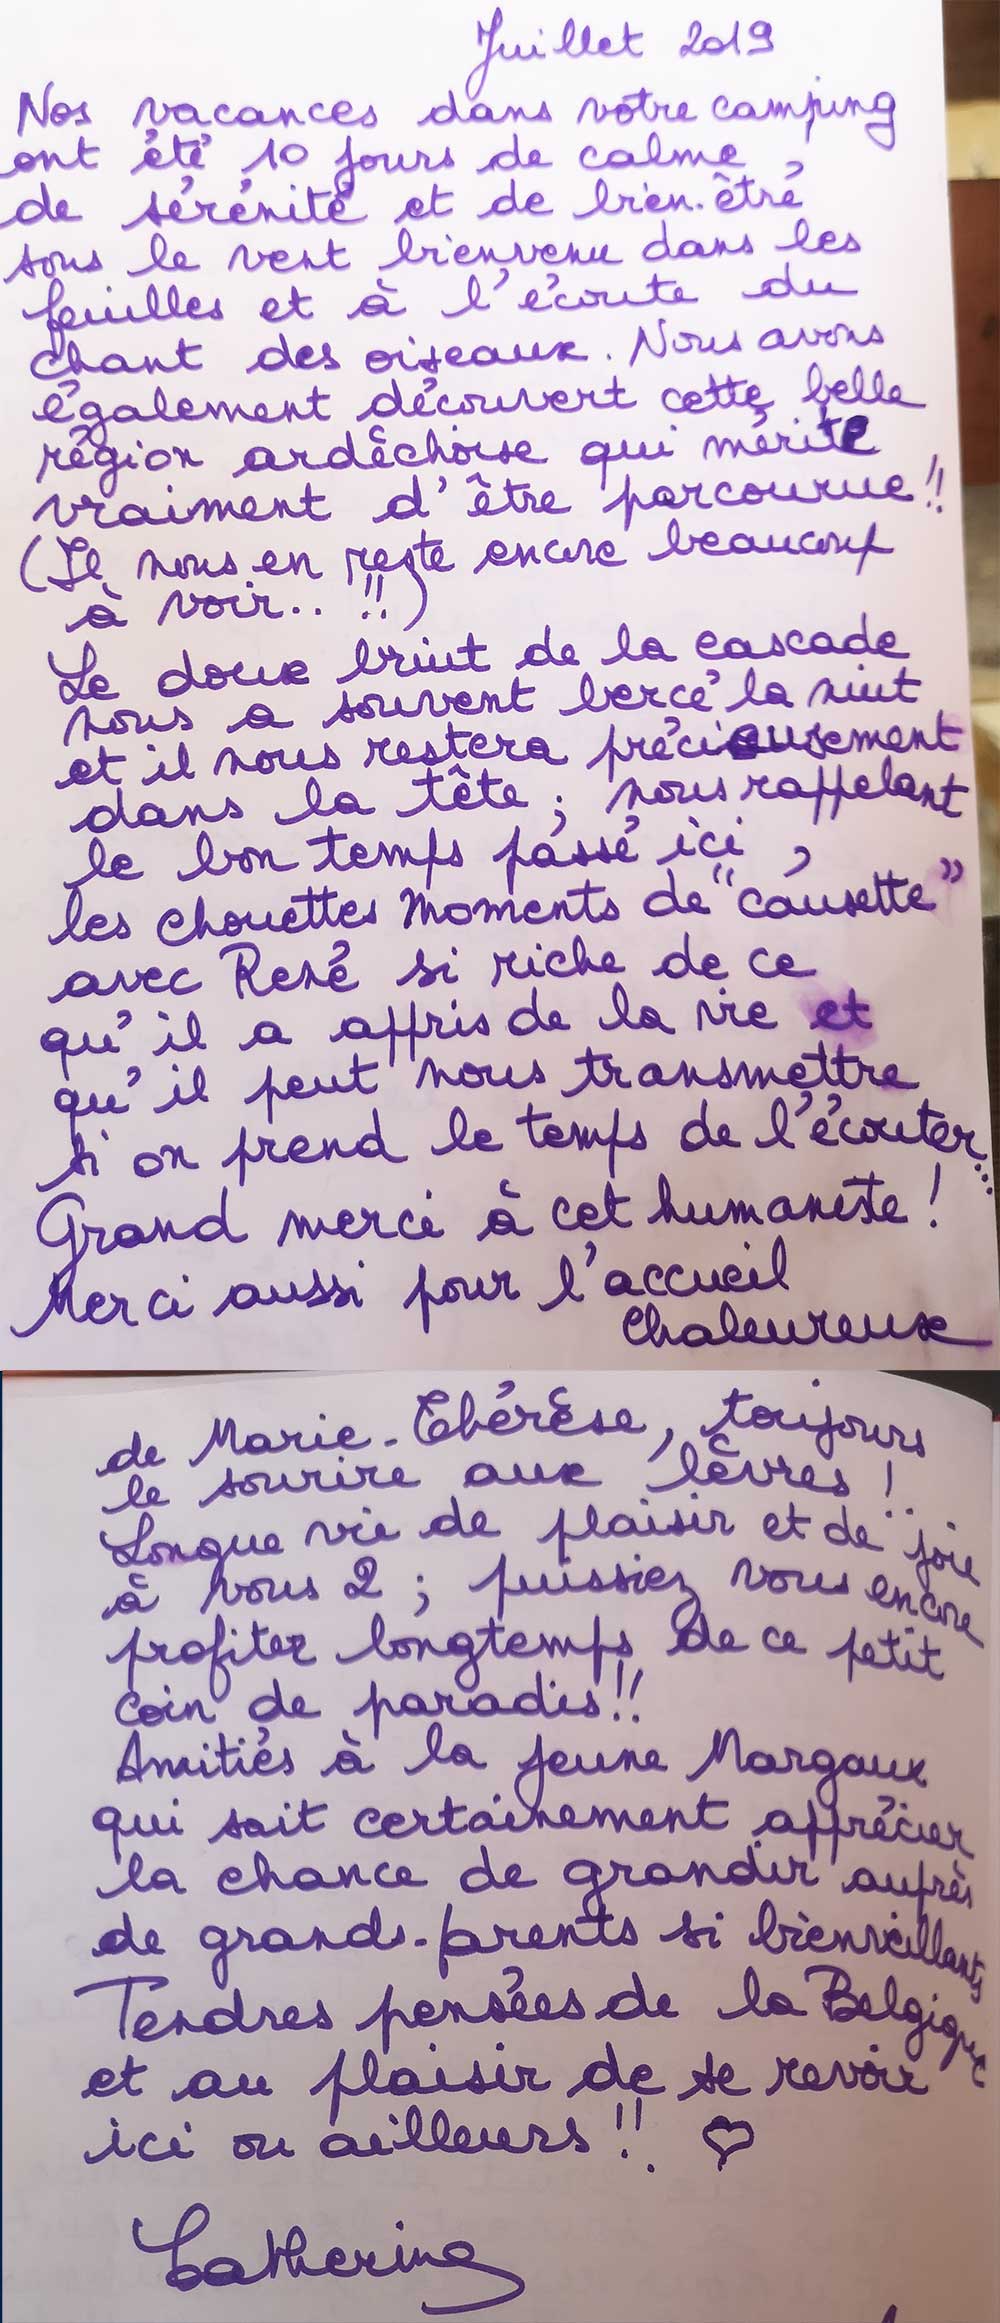 Juillet 2019
Nos vacances dans votre camping
ont été 10 jours de calme
de sérénité et de bien-être
sous le vent bienvenu dans les
feuilles et à l'écoute du
chant des oiseaux. Nous avons
également découvert cette belle
région ardèchoise qui mérite
vraiment d'être parcourue!!
(Il nous en reste encore beaucoup
à voir..!!)
Le doux bruit de la cascade
nous a souvent bercé la nuit
et il nous restera précieusement
dans la tête ; nous rappelant
le bon temps passé ici,
les chouettes moments de "causette"
avec René si riche de ce
qu'il a appris de la vie et
qu'il peut nous transmettre
si on prend le temps de l'écouter...
Grand merci à cet humaniste!
Merci aussi pour l'accueil
chaleureux
de Marie-Thérèse, toujours
le sourire aux lèvres!
Longue vie de plaisir et de joie
à vous 2 ; puissiez vous encore
profiter longtemps de ce petit
coin de paradis!!
Amitiés à la jeune Margaux
qui sait certainement apprécier
la chance de grandir auprès
de grands-parents si bienveillants
Tendres pensées de la Belgique
et au plaisir de se revoir
ici ou ailleurs!! ♡
Catherine